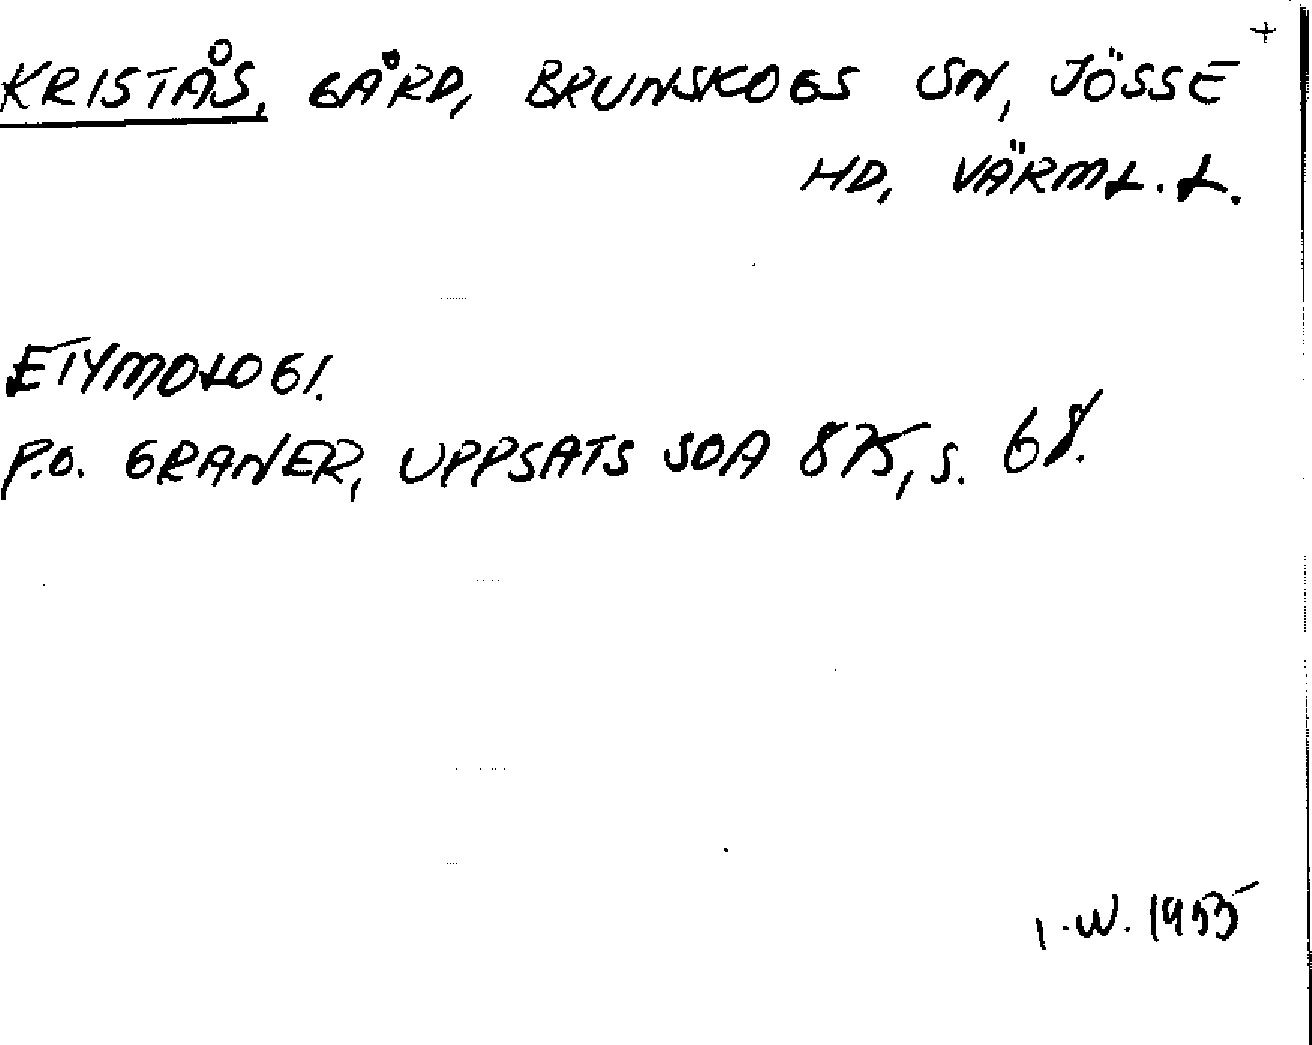 +
KRISTÅS, GÅRD, BRUNSKOGS SN, JÖSSE
HD, VÄRML. L.
ETYMOLOGI.
P.O. GRANER, UPPSATS SOA 875, S. 68.
I.W. 1955